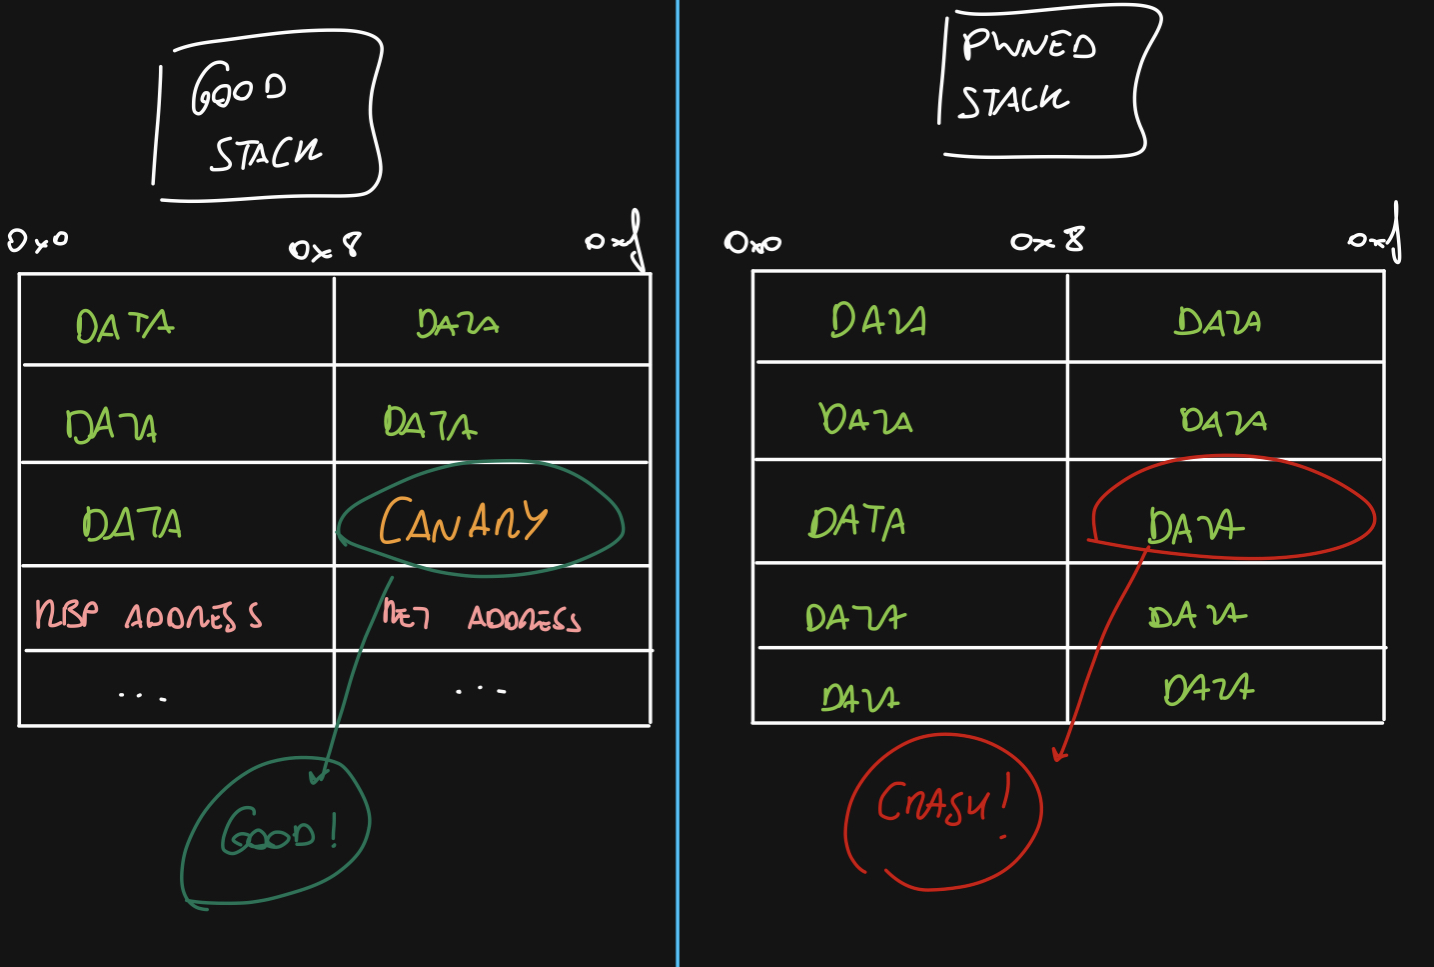 GOOD
STACK
0x0 0x8 0xf
DATA DATA
DATA DATA
DATA CANARY
RBP ADDRESS RET ADDRESS
... ...
GOOD!
PWNED
STACK
0x0 0x8 0xf
DATA DATA
DATA DATA
DATA DATA
DATA DATA
DATA DATA
CRASH!